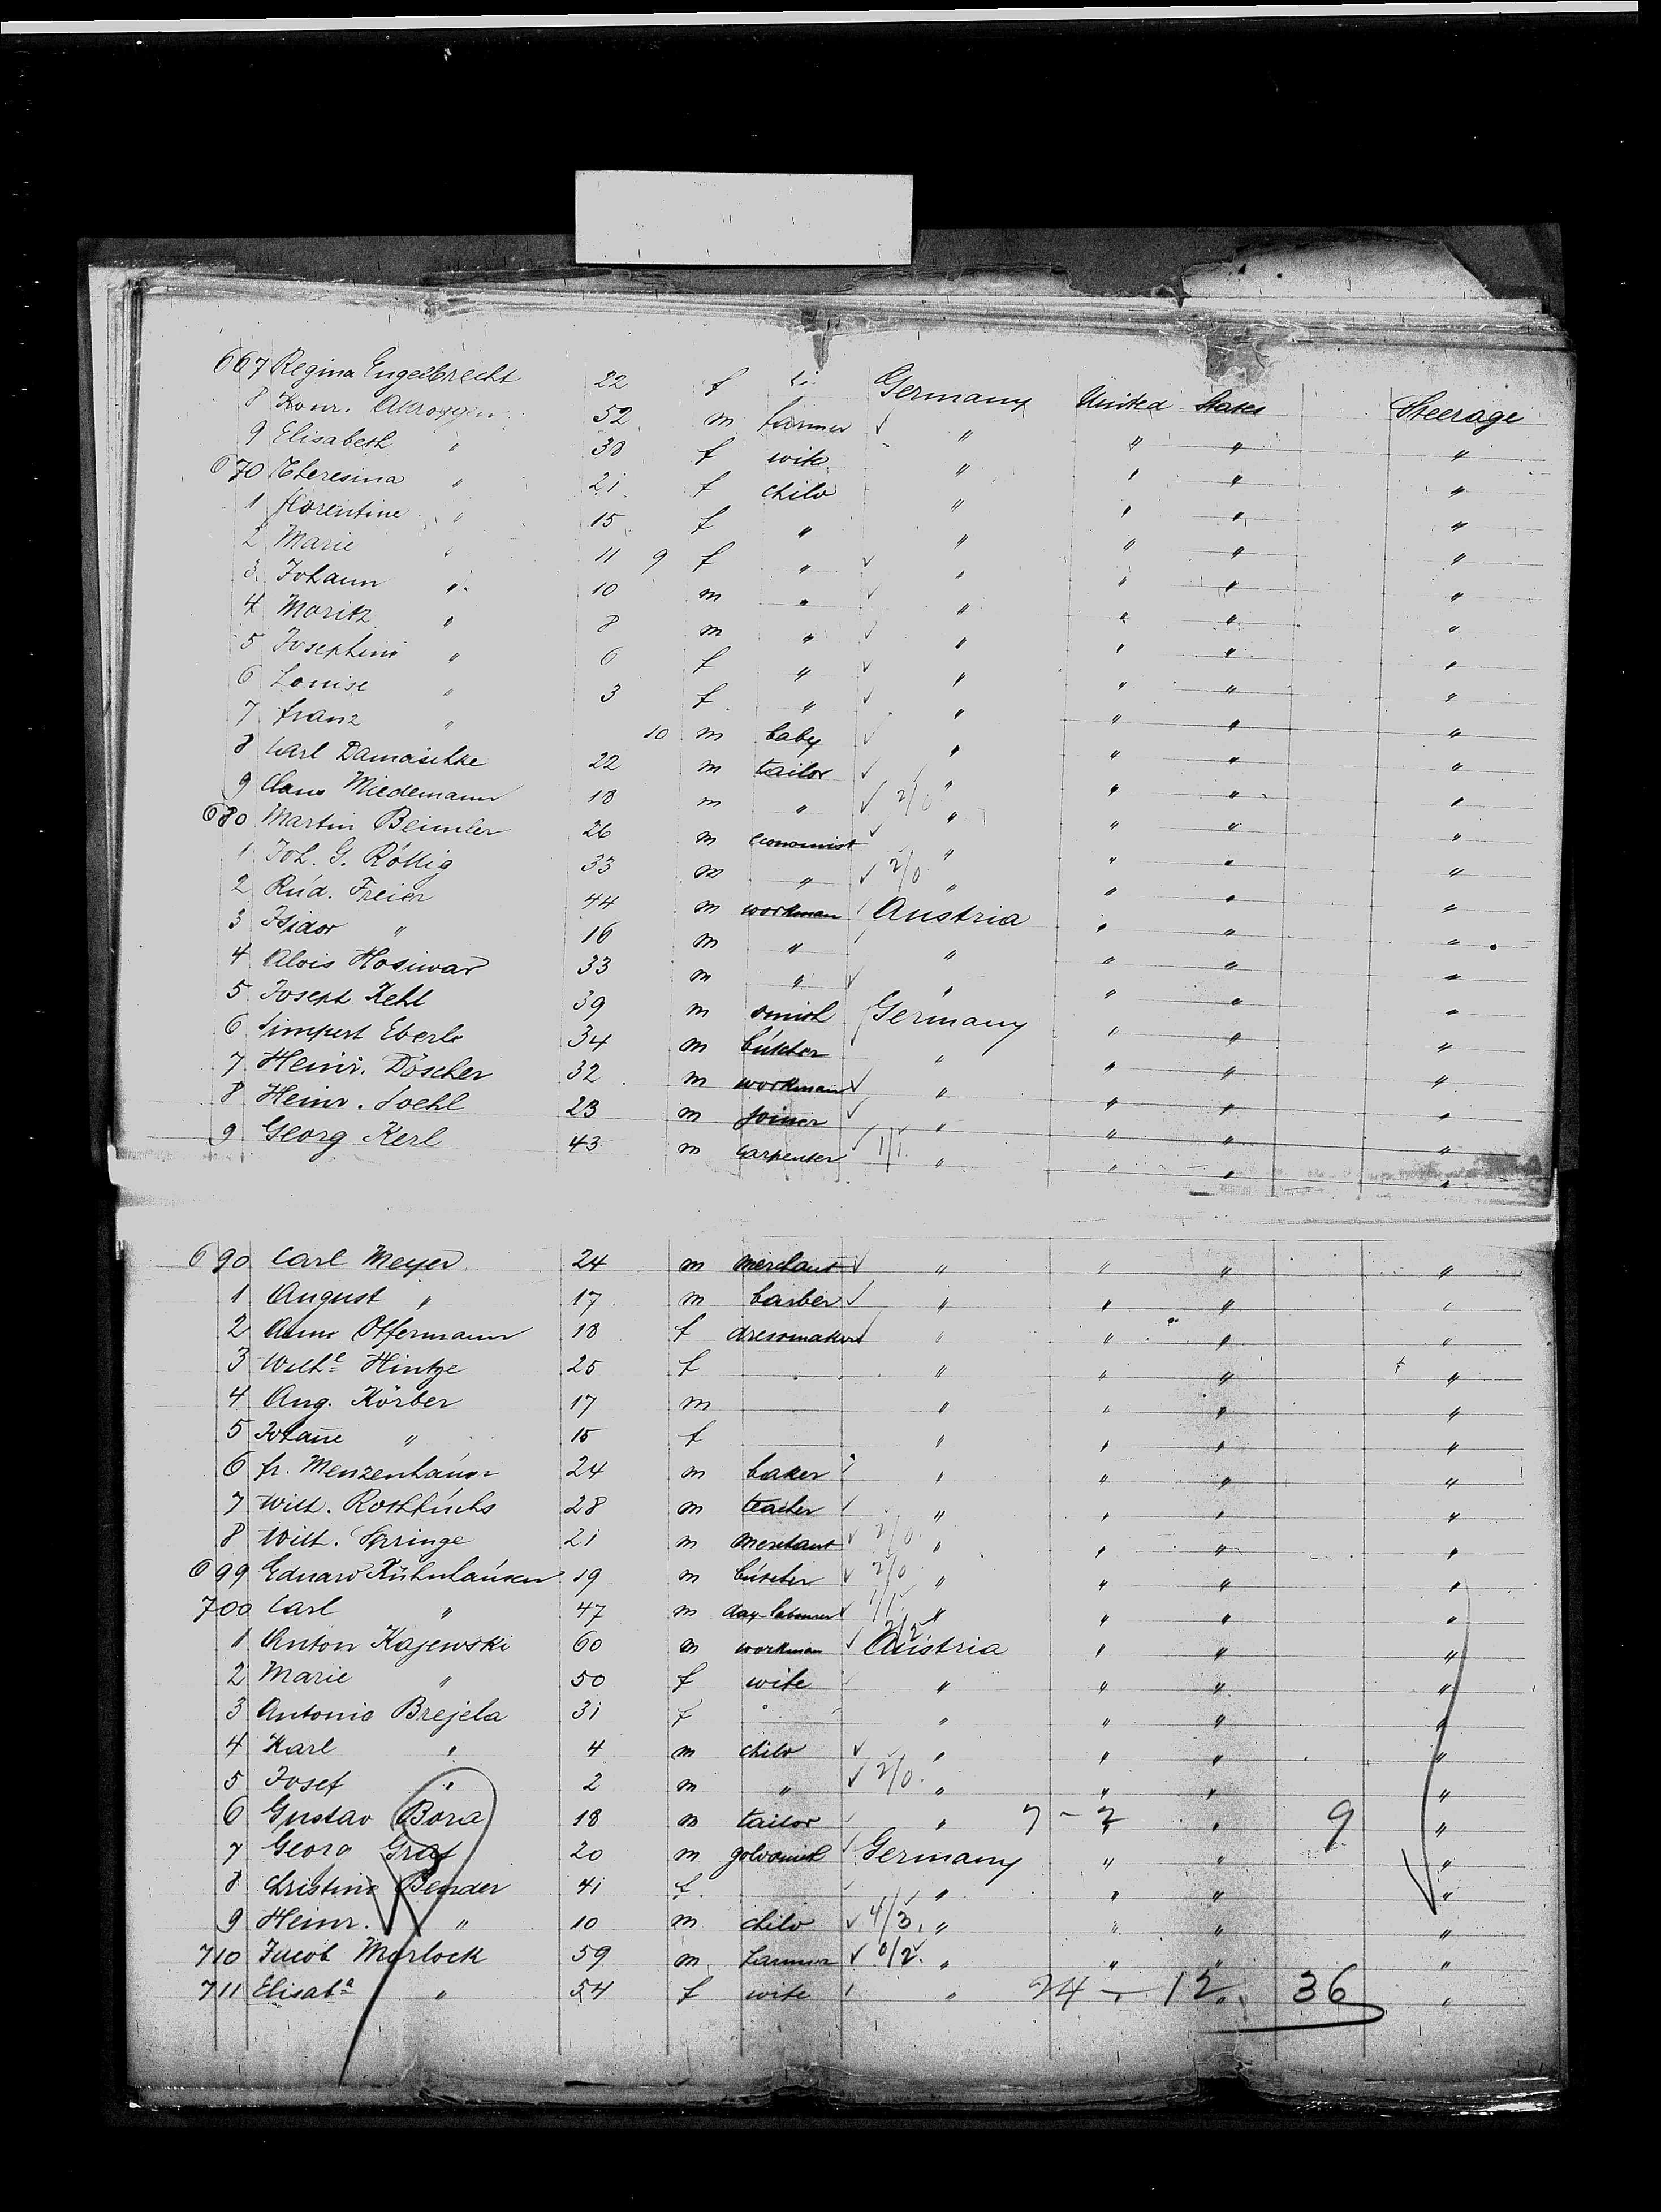 667 Regina Engelbrecht 22 f Germany United States Steerage
8 Konr. 52 m farmer " " " "
9 Elisabeth " 38 f wife " " " "
670 Theresina " 21 f child " " " "
1 Florentine " 15 f " " " " "
2 Marie " 11 9 f " " " " "
3 Johann " 10 m " " " " "
4 Moritz " 8 m " " " " "
5 Josephine " 6 f " " " " "
6 Louise " 3 f " " " " "
7 Franz " 10 m baby " " " "
8 Carl Damaschke 22 m tailor " " " "
9 Claus Miedemann 18 m " 2/0 " " " "
680 Martin Beimler 26 m economist " " " "
1 Joh. G. Röllig 33 m " 2/0 " " " "
2 Rud. Freier 44 m workman Austria " " "
3 Isidor " 16 m " " " " "
4 Alois Hosiwar 33 m " " " " "
5 Joseph Kehl 39 m smith Germany " " "
6 Simpert Eberle 34 m butcher " " " "
7 Heinr. Döscher 32 m workman " " " "
8 Heinr. Soehl 23 m joiner " " " "
9 Georg Kerl 43 m carpenter 1/1. " " " "
690 Carl Meyer 24 m merchant " " " "
1 August " 17 m barber " " " "
2 Anna Offermann 18 f dressmaker " " " "
3 Wilhe Hintze 25 f " " " "
4 Aug. Körber 17 m " " " "
5 Johañe " 15 f " " " "
6 Fr. Menzenhauer 24 m baker " " " "
7 Wilh. Rothfuchs 28 m teacher " " " "
8 Wilh. Springe 21 m merchant 2/0. " " " "
699 Eduard Kühnhausen 19 m butcher 2/0 " " " "
700 Carl " 47 m day-labourer 1/1. " " " "
1 Anton Kajewski 60 m workman 2/2 Austria " " "
2 Marie " 50 f wife " " " "
3 Antonie Brejcla 31 f " " " "
4 Karl " 4 m child " " " "
5 Josef " 2 m " 2/0. " " " "
6 Gustav Bora 18 m tailor " 7 - 2 " 9 "
7 Georg Graf 20 m goldsmith Germany " " "
8 Christine Bender 41 f " " " "
9 Heinr. " 10 m child 4/3. " " " "
710 Jacob Morlock 59 m farmer 0/2. " " " "
711 Elisabe " 54 f wife " 24 - 12 36 "